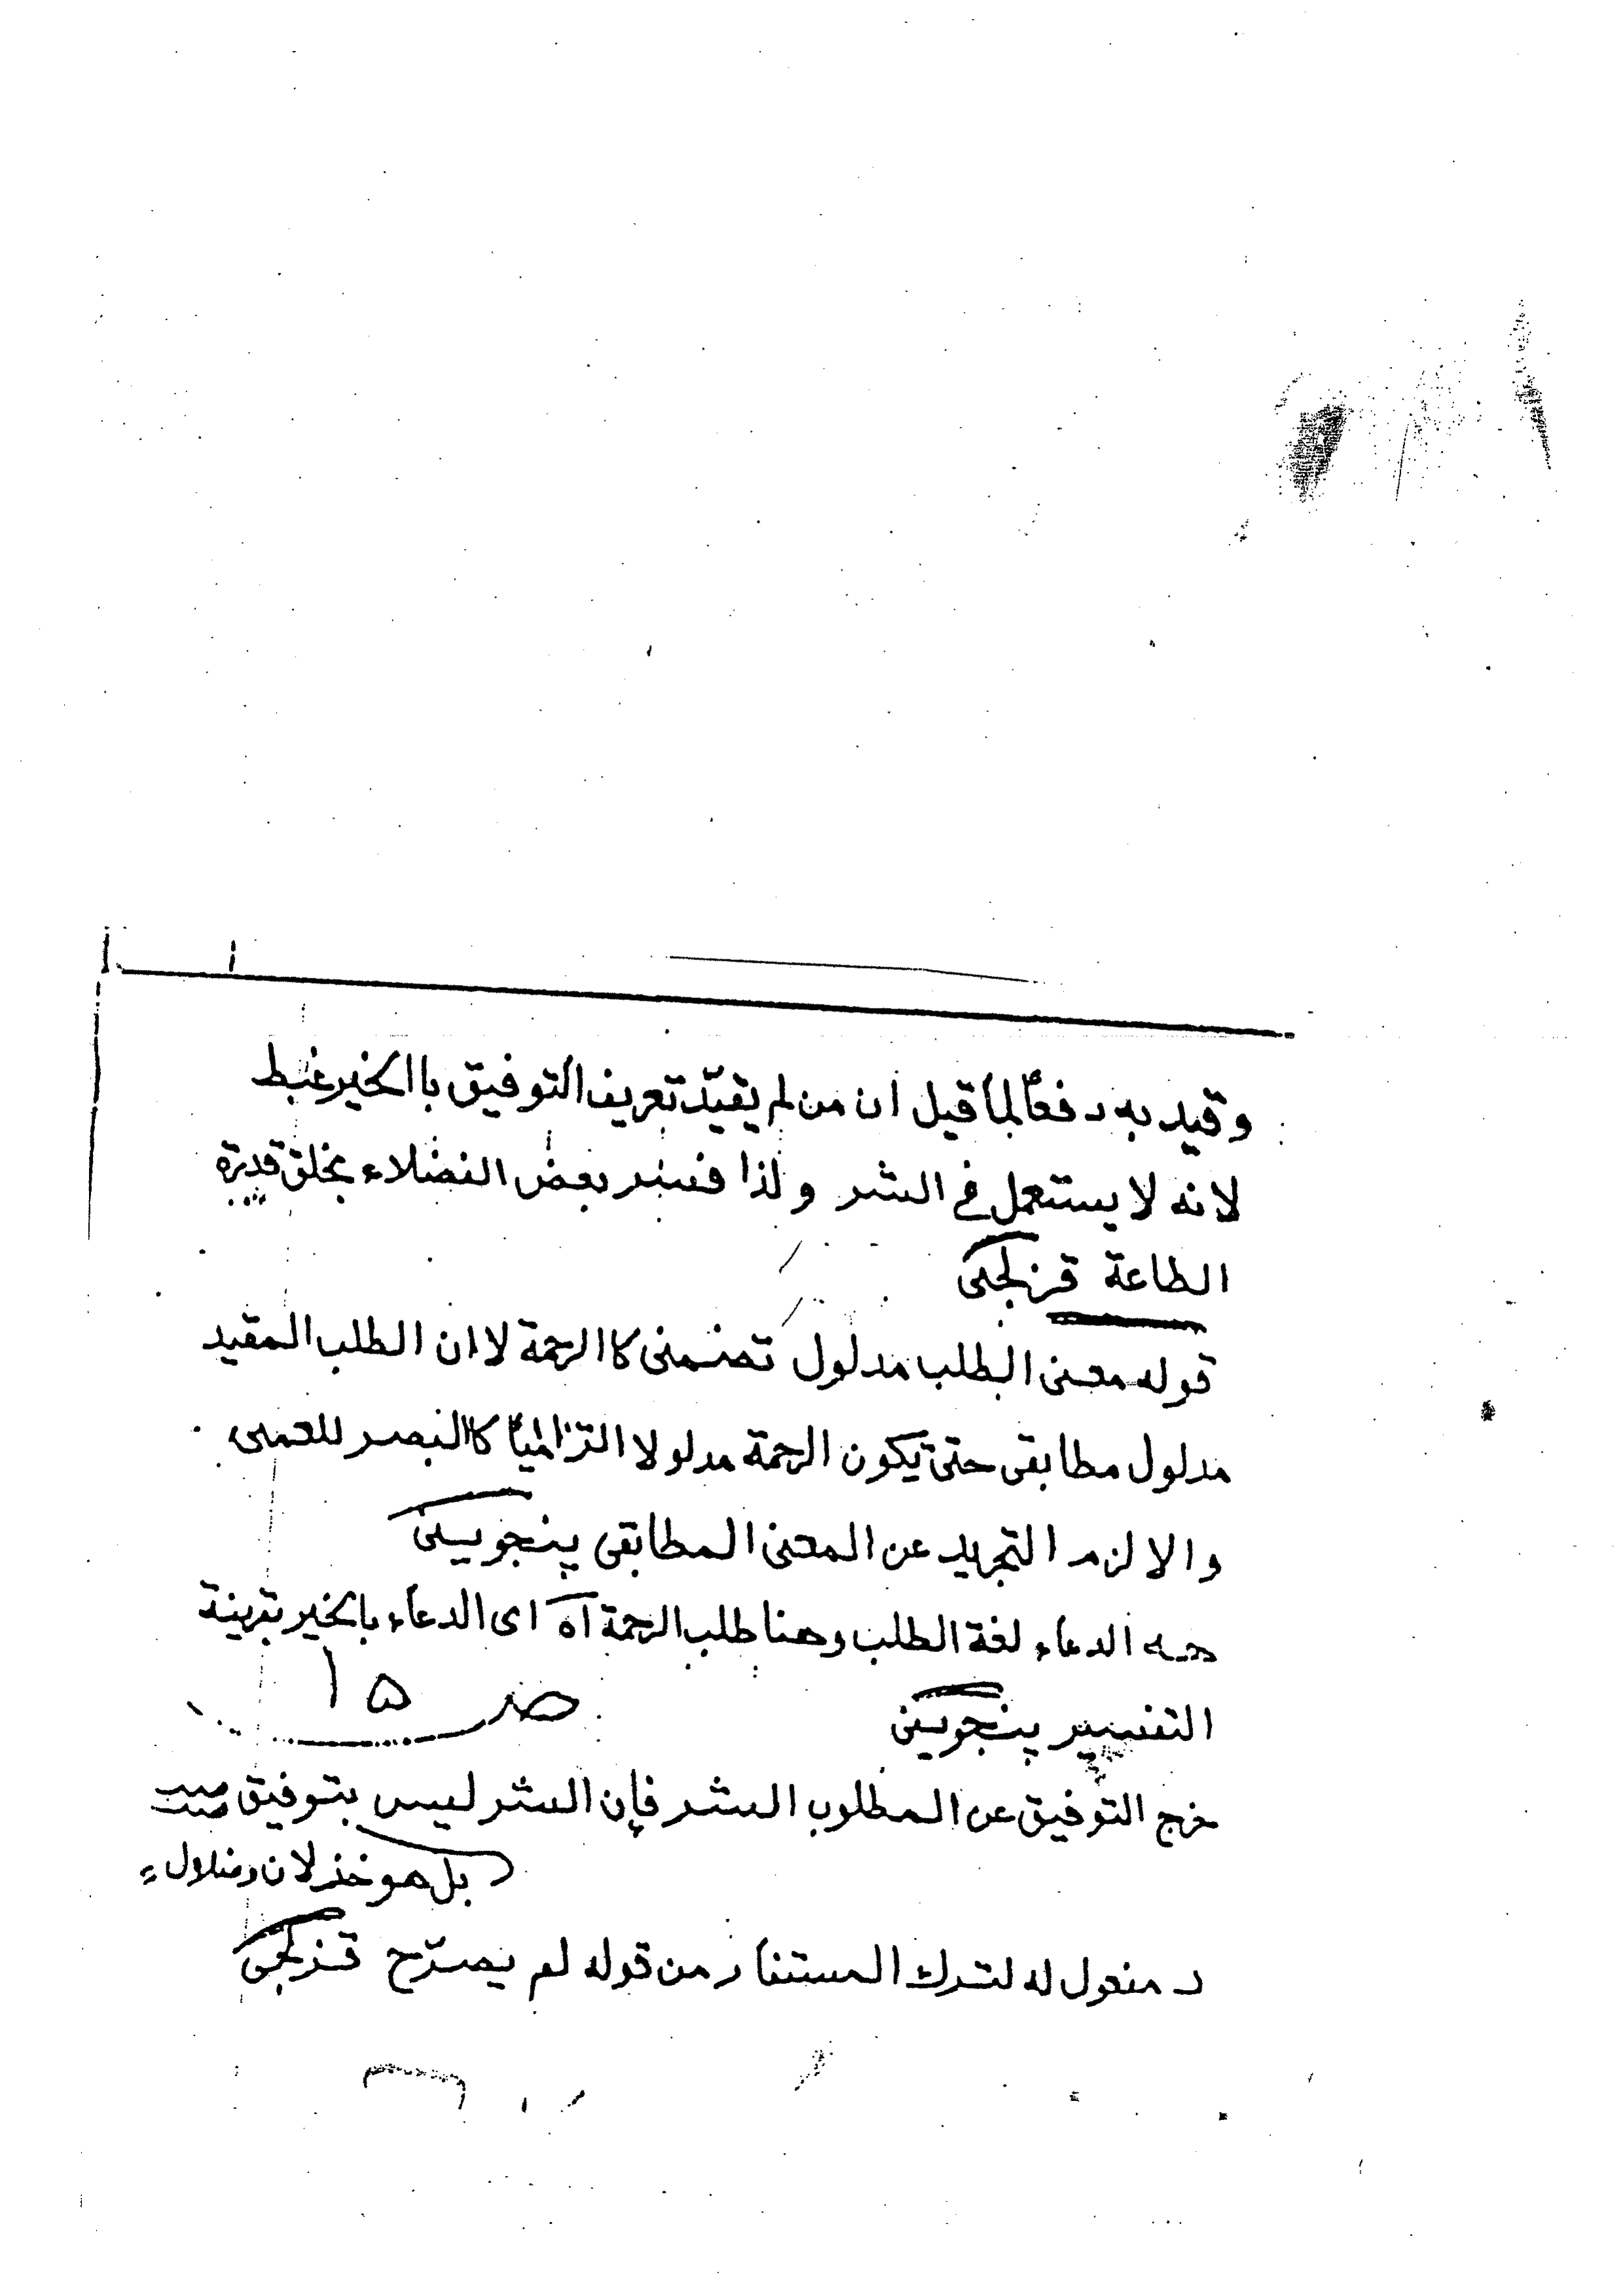 وقيد به دفعًا لما قيل ان من لم يقيّد تعريف التوفيق با الخير غبط
لانه لا يستعمل فى الشر ولذا فسر بعض الفضلاء بخلق قدرة
الطاعة قزلجى
قوله معنى الطلب مدلول تضمنى كا الرحمة لا ان الطلب المقيد
مدلول مطابقى حتى يكون الرحمة مدلولا التزاميًا كا البصر للعمى
والا لزم التجريد عن المعنى المطابقى پنجوينى
الدعاء لغة الطلب وهنا طلب الرحمة آه اى الدعاء بالخير بقرينة
التفسير پنجوينى
صـ ١٥
خرج التوفيق عن المطلوب الشر فإن الشر ليس بتوفيق
بل هو خذلان وضلال
مفعول له لترك المستفاد من قوله لم يصرّح قزلجى